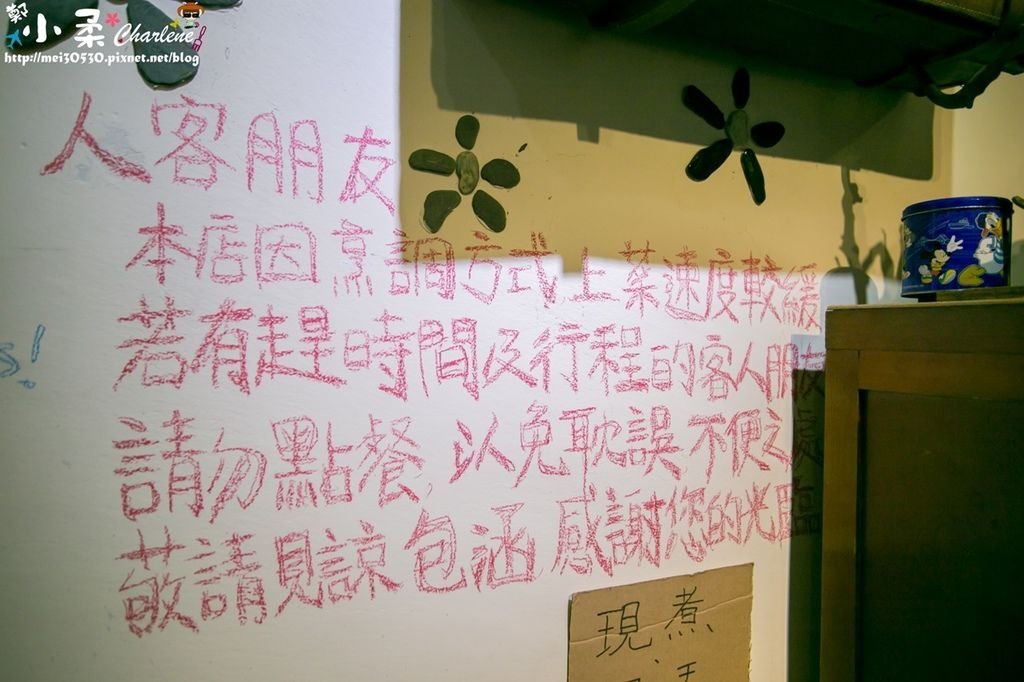 鄭小柔 Charlene
http://mei30530.pixnet.net/blog
人客朋友
本店因烹調方式上菜速度較緩
若有趕時間及行程的客人朋友
請勿點餐,以免耽誤,不便之處
敬請見諒包涵感謝您的光臨
s!
現煮